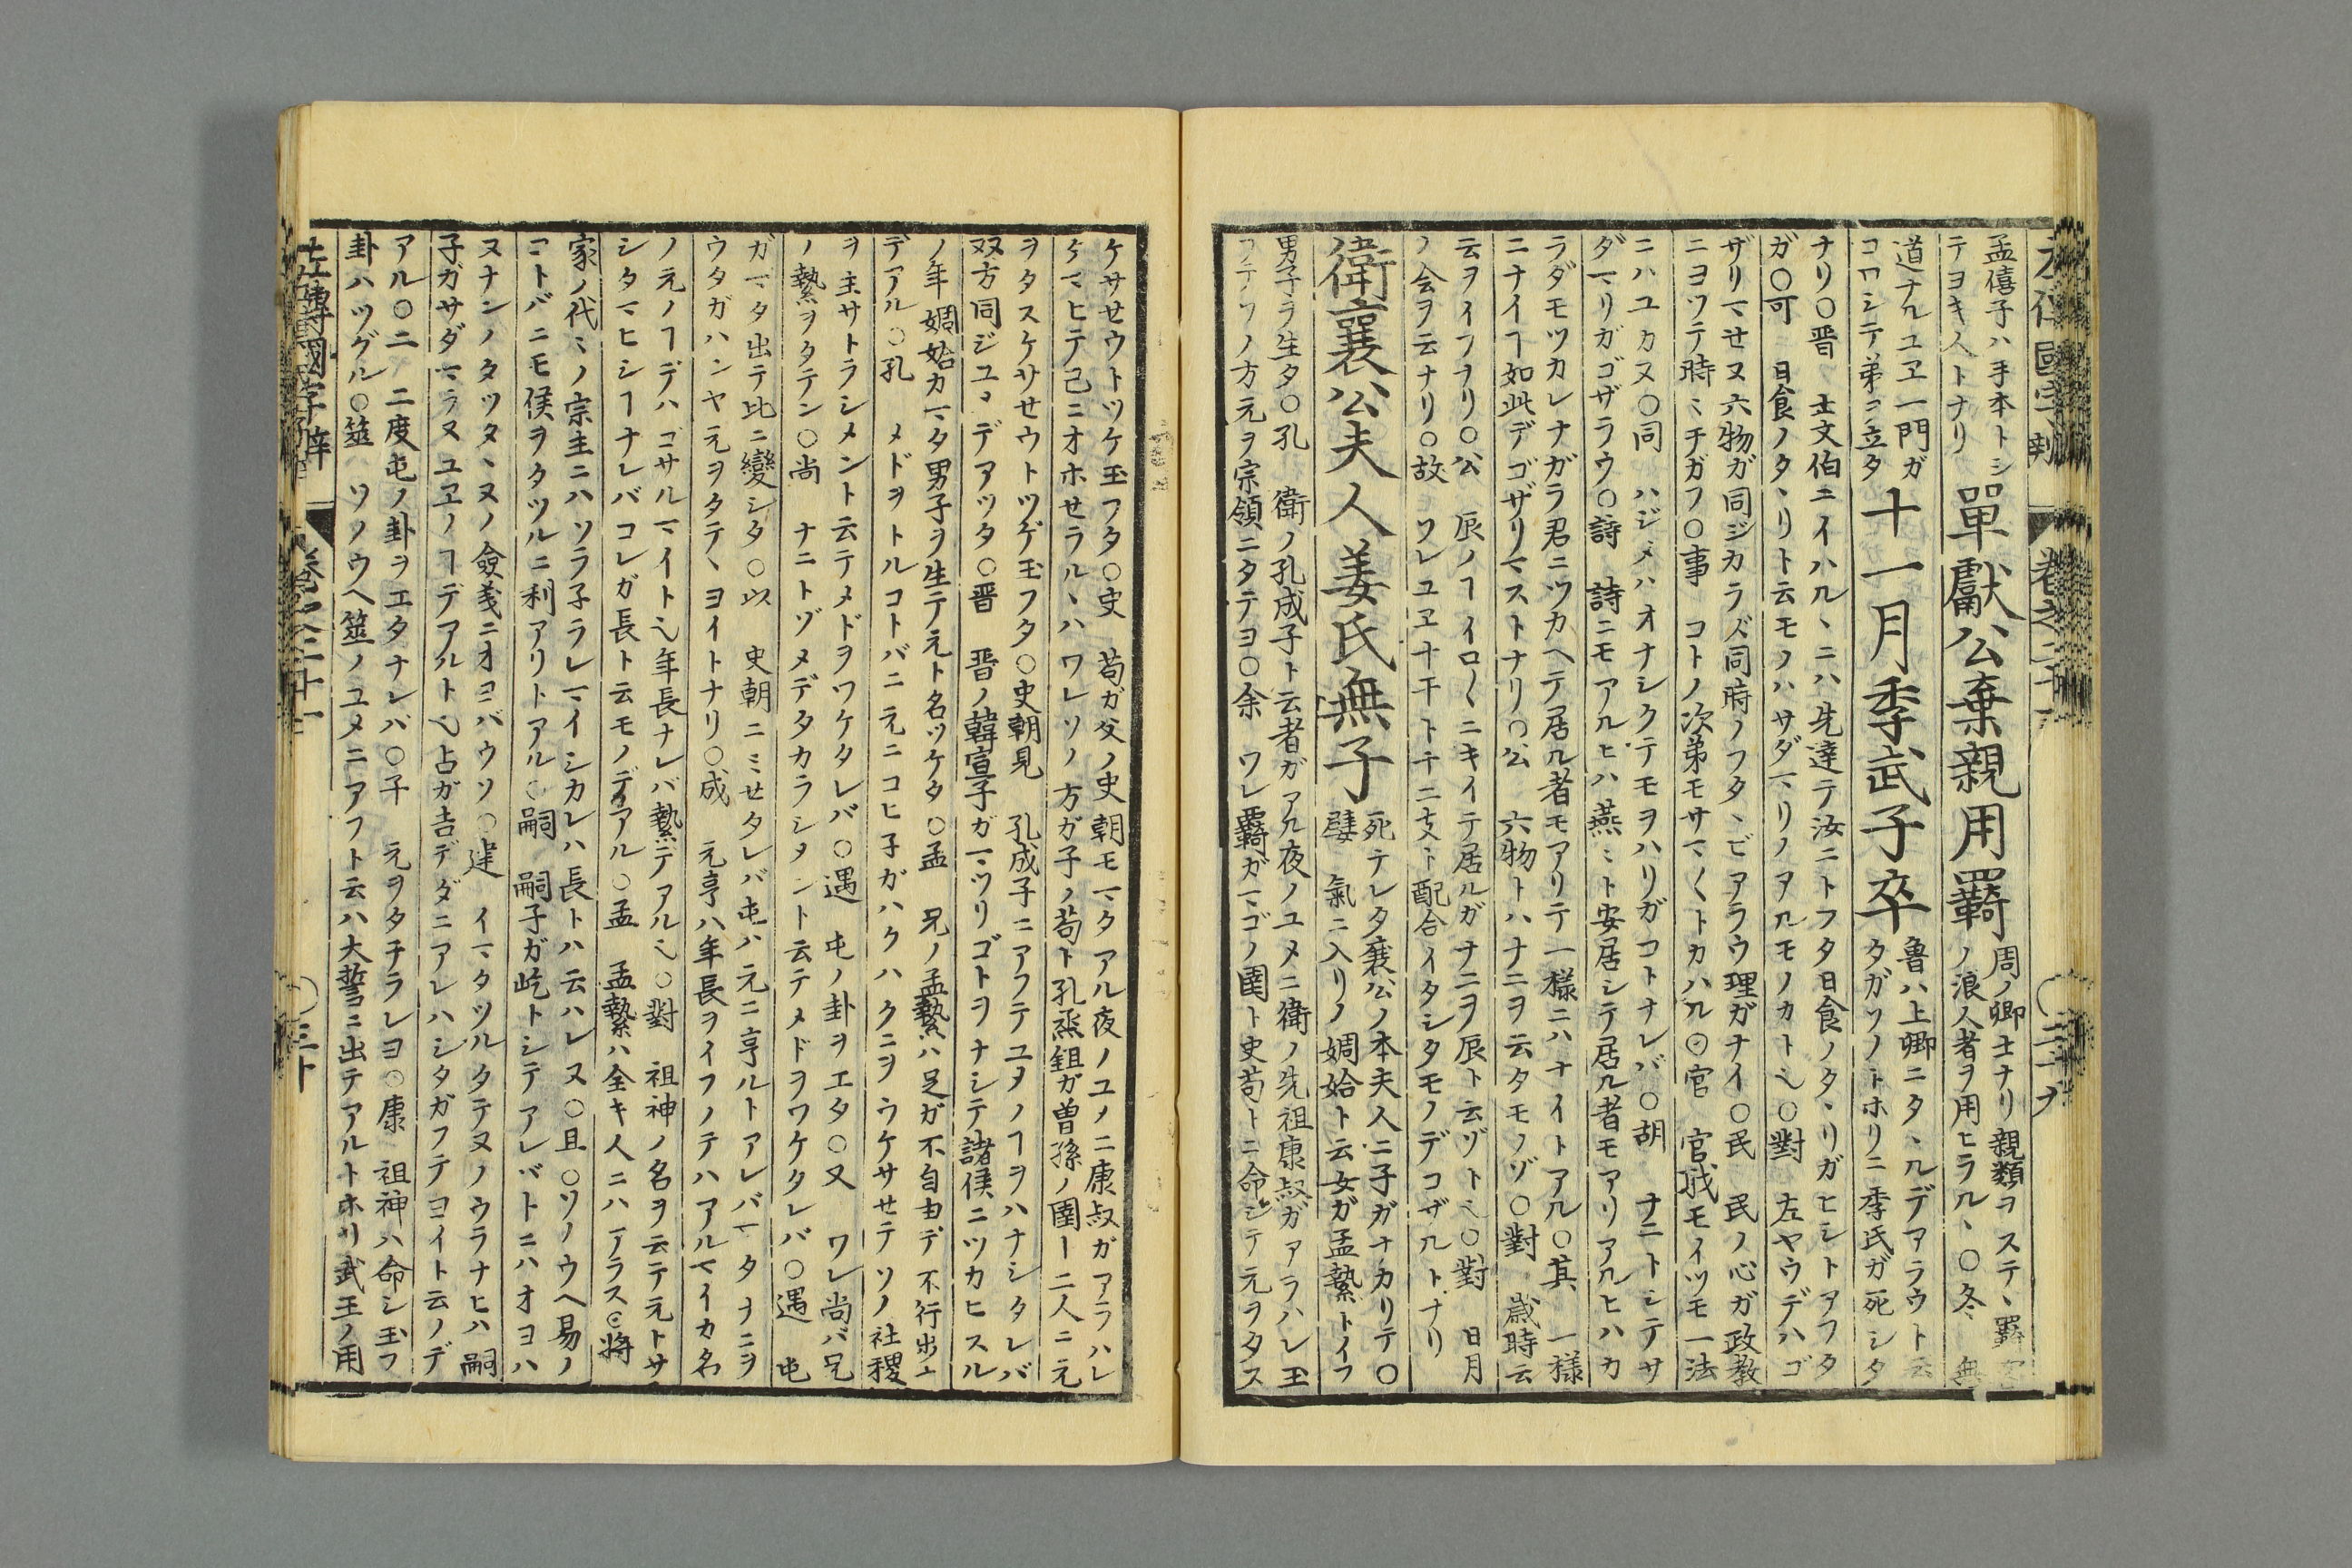 孟僖子ハ手本トシ
テヨキ人トナリ
單獻公棄親用羇
周ノ卿士ナリ親類ヲステヽ羇
ノ浪人者ヲ用ヒラルヽ○冬 無
道ナルユヱ一門ガ
コロシテ弟ヲ立タ
十一月季武子卒
魯ハ上卿ニタヽルデアラウト云
タガソノトホリニ季氏ガ死シタ
ナリ○晋 士文伯ニイハルヽニハ先達テ汝ニトフタ日食ノタヽリガヒシトアフタ
ガ○可 日食ノタヽリト云モノハサダマリノアルモノカト也○對 左ヤウデハゴ
ザリマせヌ六物ガ同ジカラズ同時ノフタヽビアラウ理ガナイ○民 民ノ心ガ政教
ニヨツテ時〻チガフ○事 コトノ次弟モサマ〱トカハル○官 官職モイツモ一法
ニハユカヌ○同 ハジメハオナシクテモヲハリガコトナレバ○胡 ナニトシテサ
ダマリガゴザラウ○詩 詩ニモアルヒハ燕〻ト安居シテ居ル者モアリアルヒハカ
ラダモツカレナガラ君ニツカヘテ居ル者モアリテ一様ニハナイトアル○其 一様
ニナイヿ如此デゴザリマストナリ○公 六物トハナニヲ云タモノゾ○對 歳時云
云ヲイフヲリ○公 辰ノヿイロ〱ニキイテ居ルガナニヲ辰ト云ゾト也○對 日月
ノ会ヲ云ナリ○故 ソレユヱ十干ト十二支ト配合イタシタモノデコザルトナリ
衛襄公夫人姜氏無子
死テレタ襄公ノ本夫人ニ子ガナカリテ○
嬖 氣ニ入リノ婤姶ト云女ガ孟縶トイフ
男子ヲ生タ○孔 衛ノ孔成子ト云者ガアル夜ノユメニ衛ノ先祖康叔ガアラハレ玉
フテソノ方元ヲ宗領ニタテヨ○余 ワレ羇ガマゴノ圉ト史苟トニ命シテ元ヲタス
ケサせウトツケ玉フタ○史 苟ガ父ノ史朝モマタアル夜ノユメニ康叔ガアラハレ
ケマヒテ己ニオホせラルヽハワレソノ方ガ子ノ苟ト孔烝鉏ガ曽孫ノ圉ト二人ニ元
ヲタスケサせウトツゲ玉フタ○史朝見 孔成子ニアフテユメノヿヲハナシタレバ
双方同ジユメデアツタ○晋 晋ノ韓宣子ガマツリゴトヲナシテ諸侯ニツカヒスル
ノ年婤姶カマタ男子ヲ生テ元ト名ツケタ○孟 兄ノ孟縶ハ足ガ不自由デ不行歩ニ
デアル○孔 メドヲトルコトバニ元ニコヒ子ガハクハクニヲウケサせテソノ社稷
ヲ主サトラシメント云テメドヲワケタレバ○遇 屯ノ卦ヲエタ○又 ワレ尚バ兄
ノ縶ヲタテン○尚 ナニトゾメデタカラシメント云テメドヲワケタレバ○遇 屯
ガマタ出テ比ニ變シタ○以 史朝ニミせタレバ屯ハ元ニ亨ルトアレバマタナニヲ
ウタガハンヤ元ヲタテヽヨイトナリ○成 元亨ハ年長ヲイフノテハアルマイカ名
ノ元ノヿデハゴサルマイト也年長ナレバ縶デアル也○對 祖神ノ名ヲ云テ元トサ
シタマヒシヿナレバコレガ長ト云モノデアル○孟 孟縶ハ全キ人ニハアラス○將
家ノ代〻ノ宗主ニハソラ子ラレマイシカレハ長トハ云ハレヌ○且 ○ソノウヘ易ノ
コトバニモ侯ヲタツルニ利アリトアル○嗣 嗣子ガ屹トシテアレバトニハオヨハ
ヌナンノタツタヽヌノ僉義ニオヨバウソ○建 イマタツルタテヌノウラナヒハ嗣
子ガサダマラヌユヱノヿデアルト也占ガ吉デダニアレハシタガフテヨイト云ノデ
アル○二 二度屯ノ卦ヲエタナレバ○子 元ヲタチラレヨ○康 祖神ハ命シ玉フ
卦ハツグル○筮 ソノウヘ筮ノユメニアフト云ハ大誓ニ出テアルトホリ武王ノ用
左傳國字辯 卷之二十一 ○三十